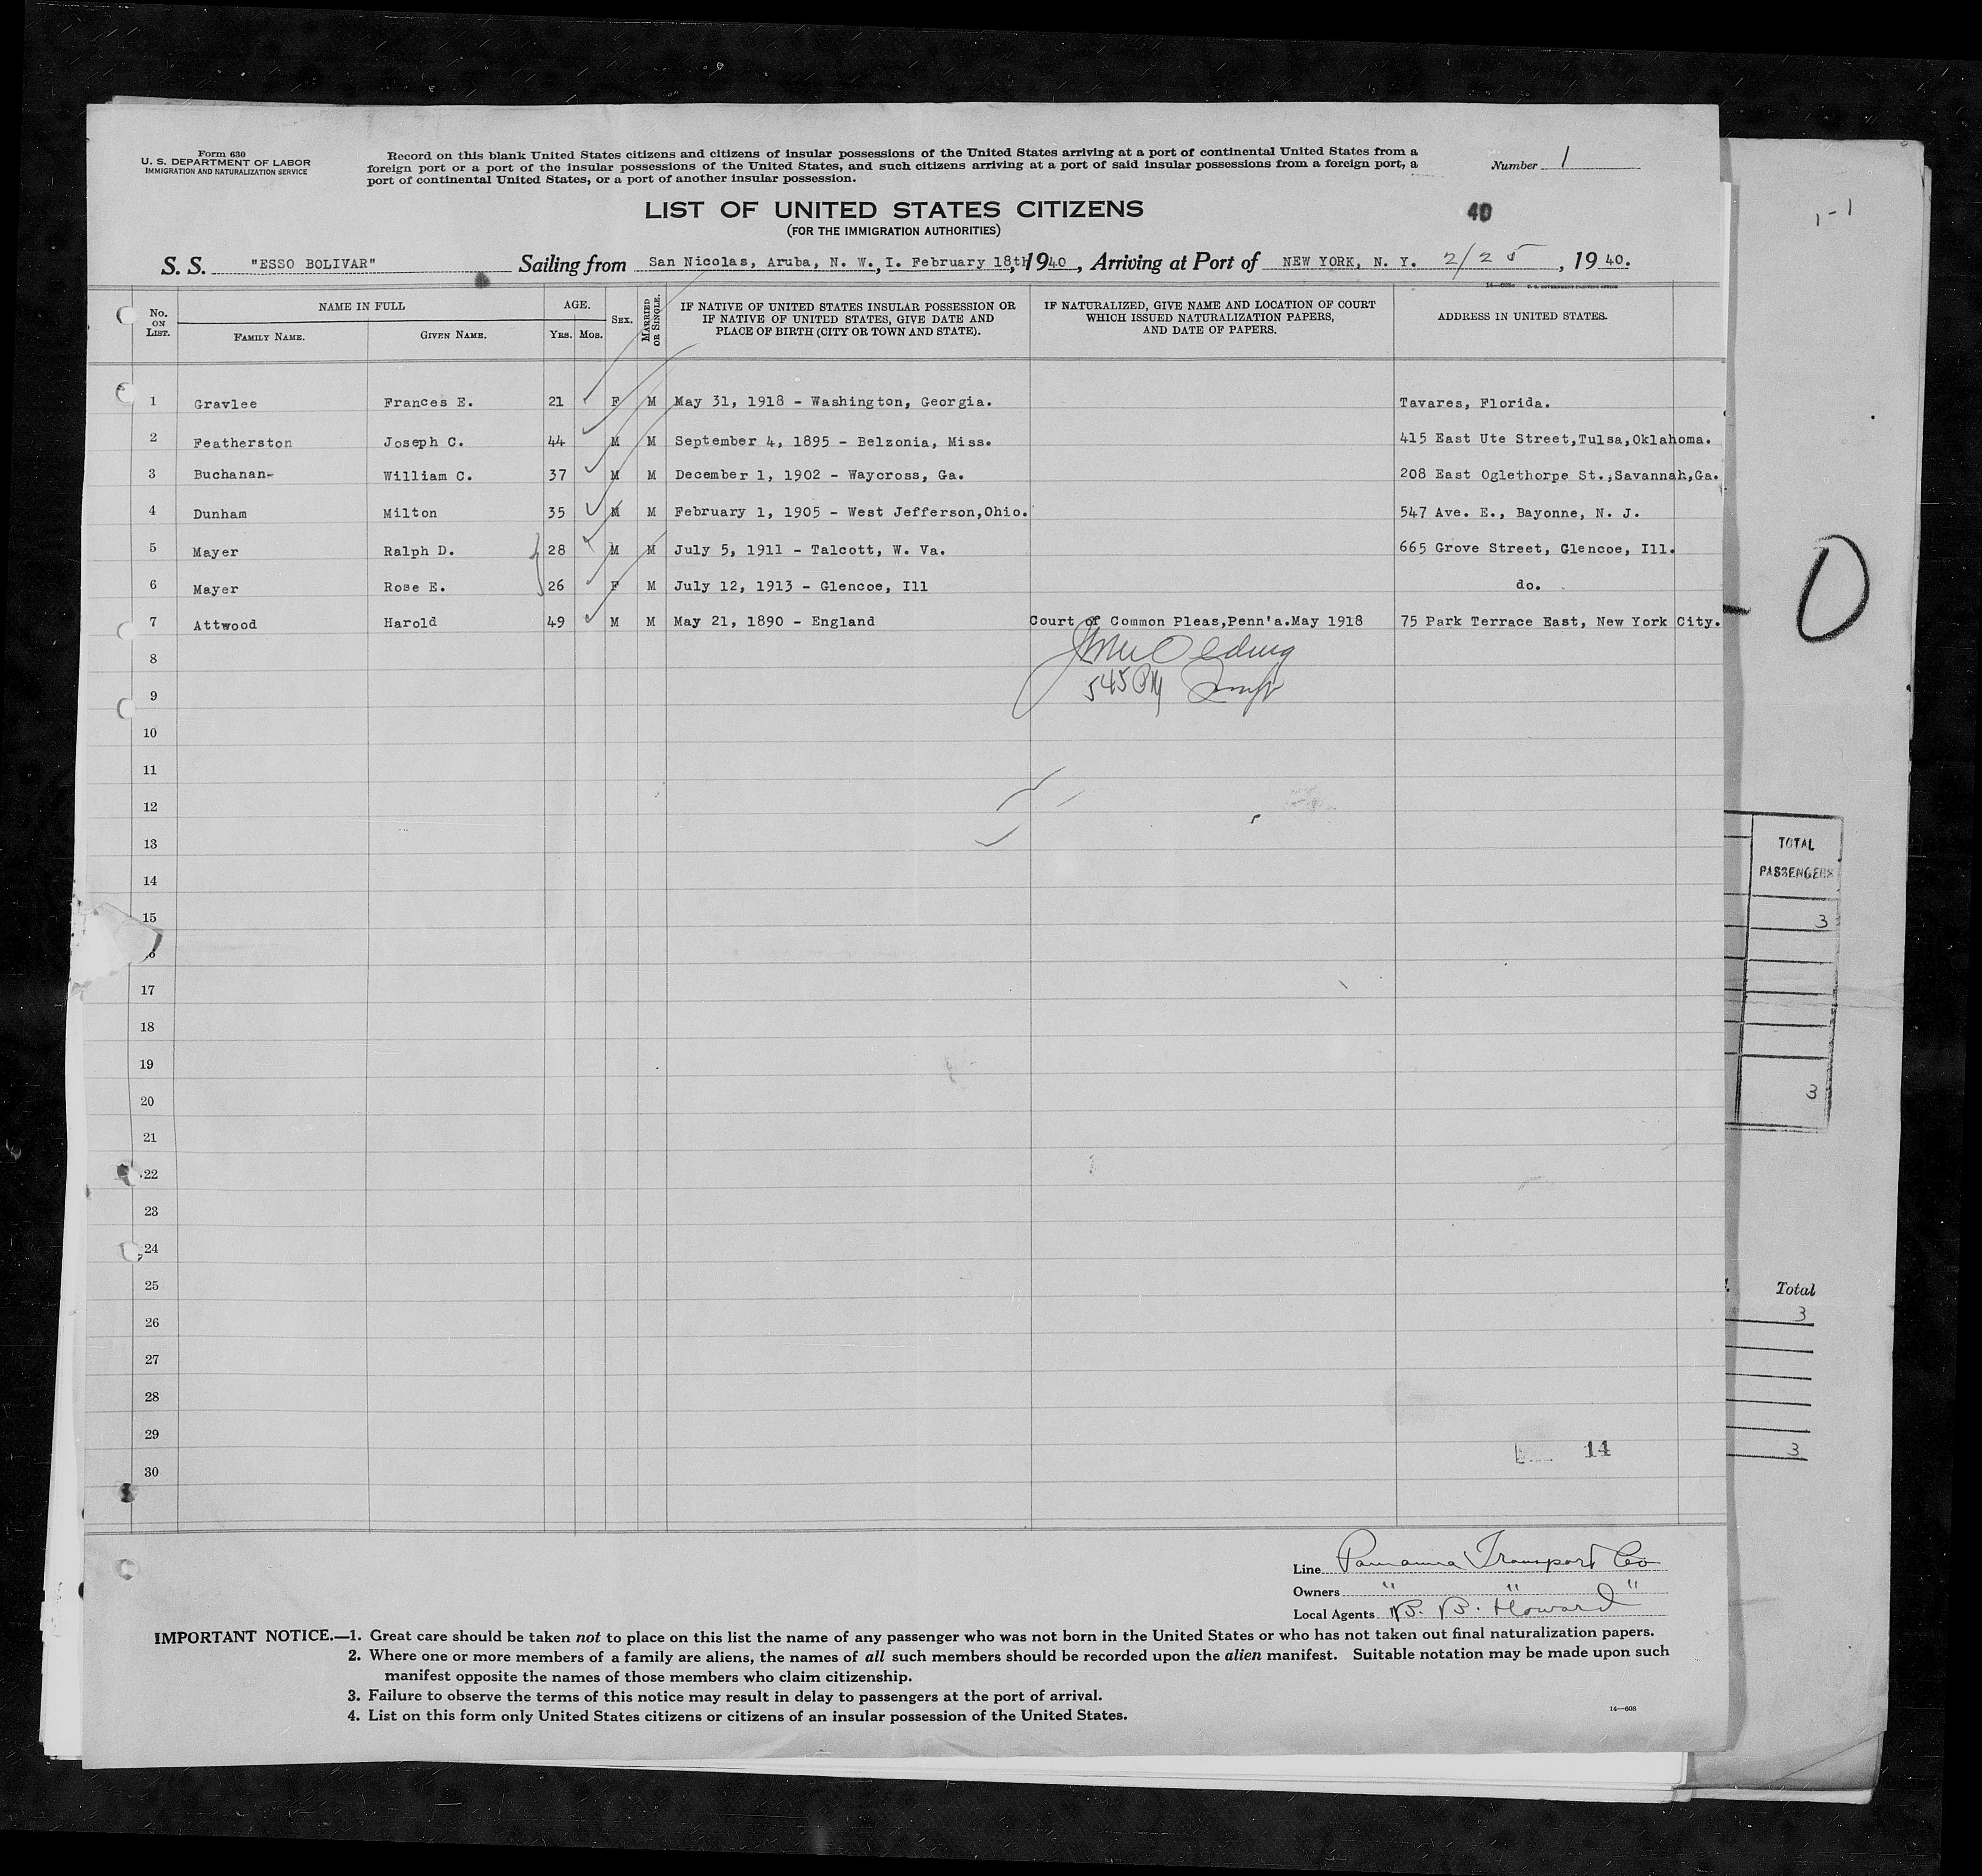 Form 630
U. S. DEPARTMENT OF LABOR
IMMIGRATION AND NATURALIZATION SERVICE
Record on this blank United States citizens and citizens of insular possessions of the United States arriving at a port of continental United States from a
foreign port or a port of the insular possessions of the United States, and such citizens arriving at a port of said insular possessions from a foreign port, a
port of continental United States, or a port of another insular possession.
Number 1
1-1
LIST OF UNITED STATES CITIZENS
40
(FOR THE IMMIGRATION AUTHORITIES)
S. S. "ESSO BOLIVAR" Sailing from San Nicolas, Aruba, N. W., I. February 18th, 1940, Arriving at Port of NEW YORK, N. Y. 2/25, 1940.
No. ON LIST.
NAME IN FULL
FAMILY NAME. GIVEN NAME.
AGE.
YRS. MOS.
SEX.
MARRIED OR SINGLE.
IF NATIVE OF UNITED STATES INSULAR POSSESSION OR
IF NATIVE OF UNITED STATES, GIVE DATE AND
PLACE OF BIRTH (CITY OR TOWN AND STATE).
IF NATURALIZED, GIVE NAME AND LOCATION OF COURT
WHICH ISSUED NATURALIZATION PAPERS,
AND DATE OF PAPERS.
ADDRESS IN UNITED STATES.
1 Gravlee Frances E. 21 F M May 31, 1918 - Washington, Georgia. Tavares, Florida.
2 Featherston Joseph C. 44 M M September 4, 1895 - Belzonia, Miss. 415 East Ute Street,Tulsa,Oklahoma.
3 Buchanan- William C. 37 M M December 1, 1902 - Waycross, Ga. 208 East Oglethorpe St.,Savannah,Ga.
4 Dunham Milton 35 M M February 1, 1905 - West Jefferson,Ohio. 547 Ave. E., Bayonne, N. J.
5 Mayer Ralph D. 28 M M July 5, 1911 - Talcott, W. Va. 665 Grove Street, Glencoe, Ill.
6 Mayer Rose E. 26 F M July 12, 1913 - Glencoe, Ill do.
7 Attwood Harold 49 M M May 21, 1890 - England Court of Common Pleas,Penn'a.May 1918 75 Park Terrace East, New York City.
8
9 545 PM
10
11
12
13
14
15
17
18
19
20
21
22
23
24
25
26
27
28
29
14
30
0
TOTAL
PASSENGERS
3
3
Total
3
3
Line Panama Transport Co
Owners " " "
Local Agents B. B. Howard
IMPORTANT NOTICE.—1. Great care should be taken not to place on this list the name of any passenger who was not born in the United States or who has not taken out final naturalization papers.
2. Where one or more members of a family are aliens, the names of all such members should be recorded upon the alien manifest. Suitable notation may be made upon such
manifest opposite the names of those members who claim citizenship.
3. Failure to observe the terms of this notice may result in delay to passengers at the port of arrival.
4. List on this form only United States citizens or citizens of an insular possession of the United States.
14—608